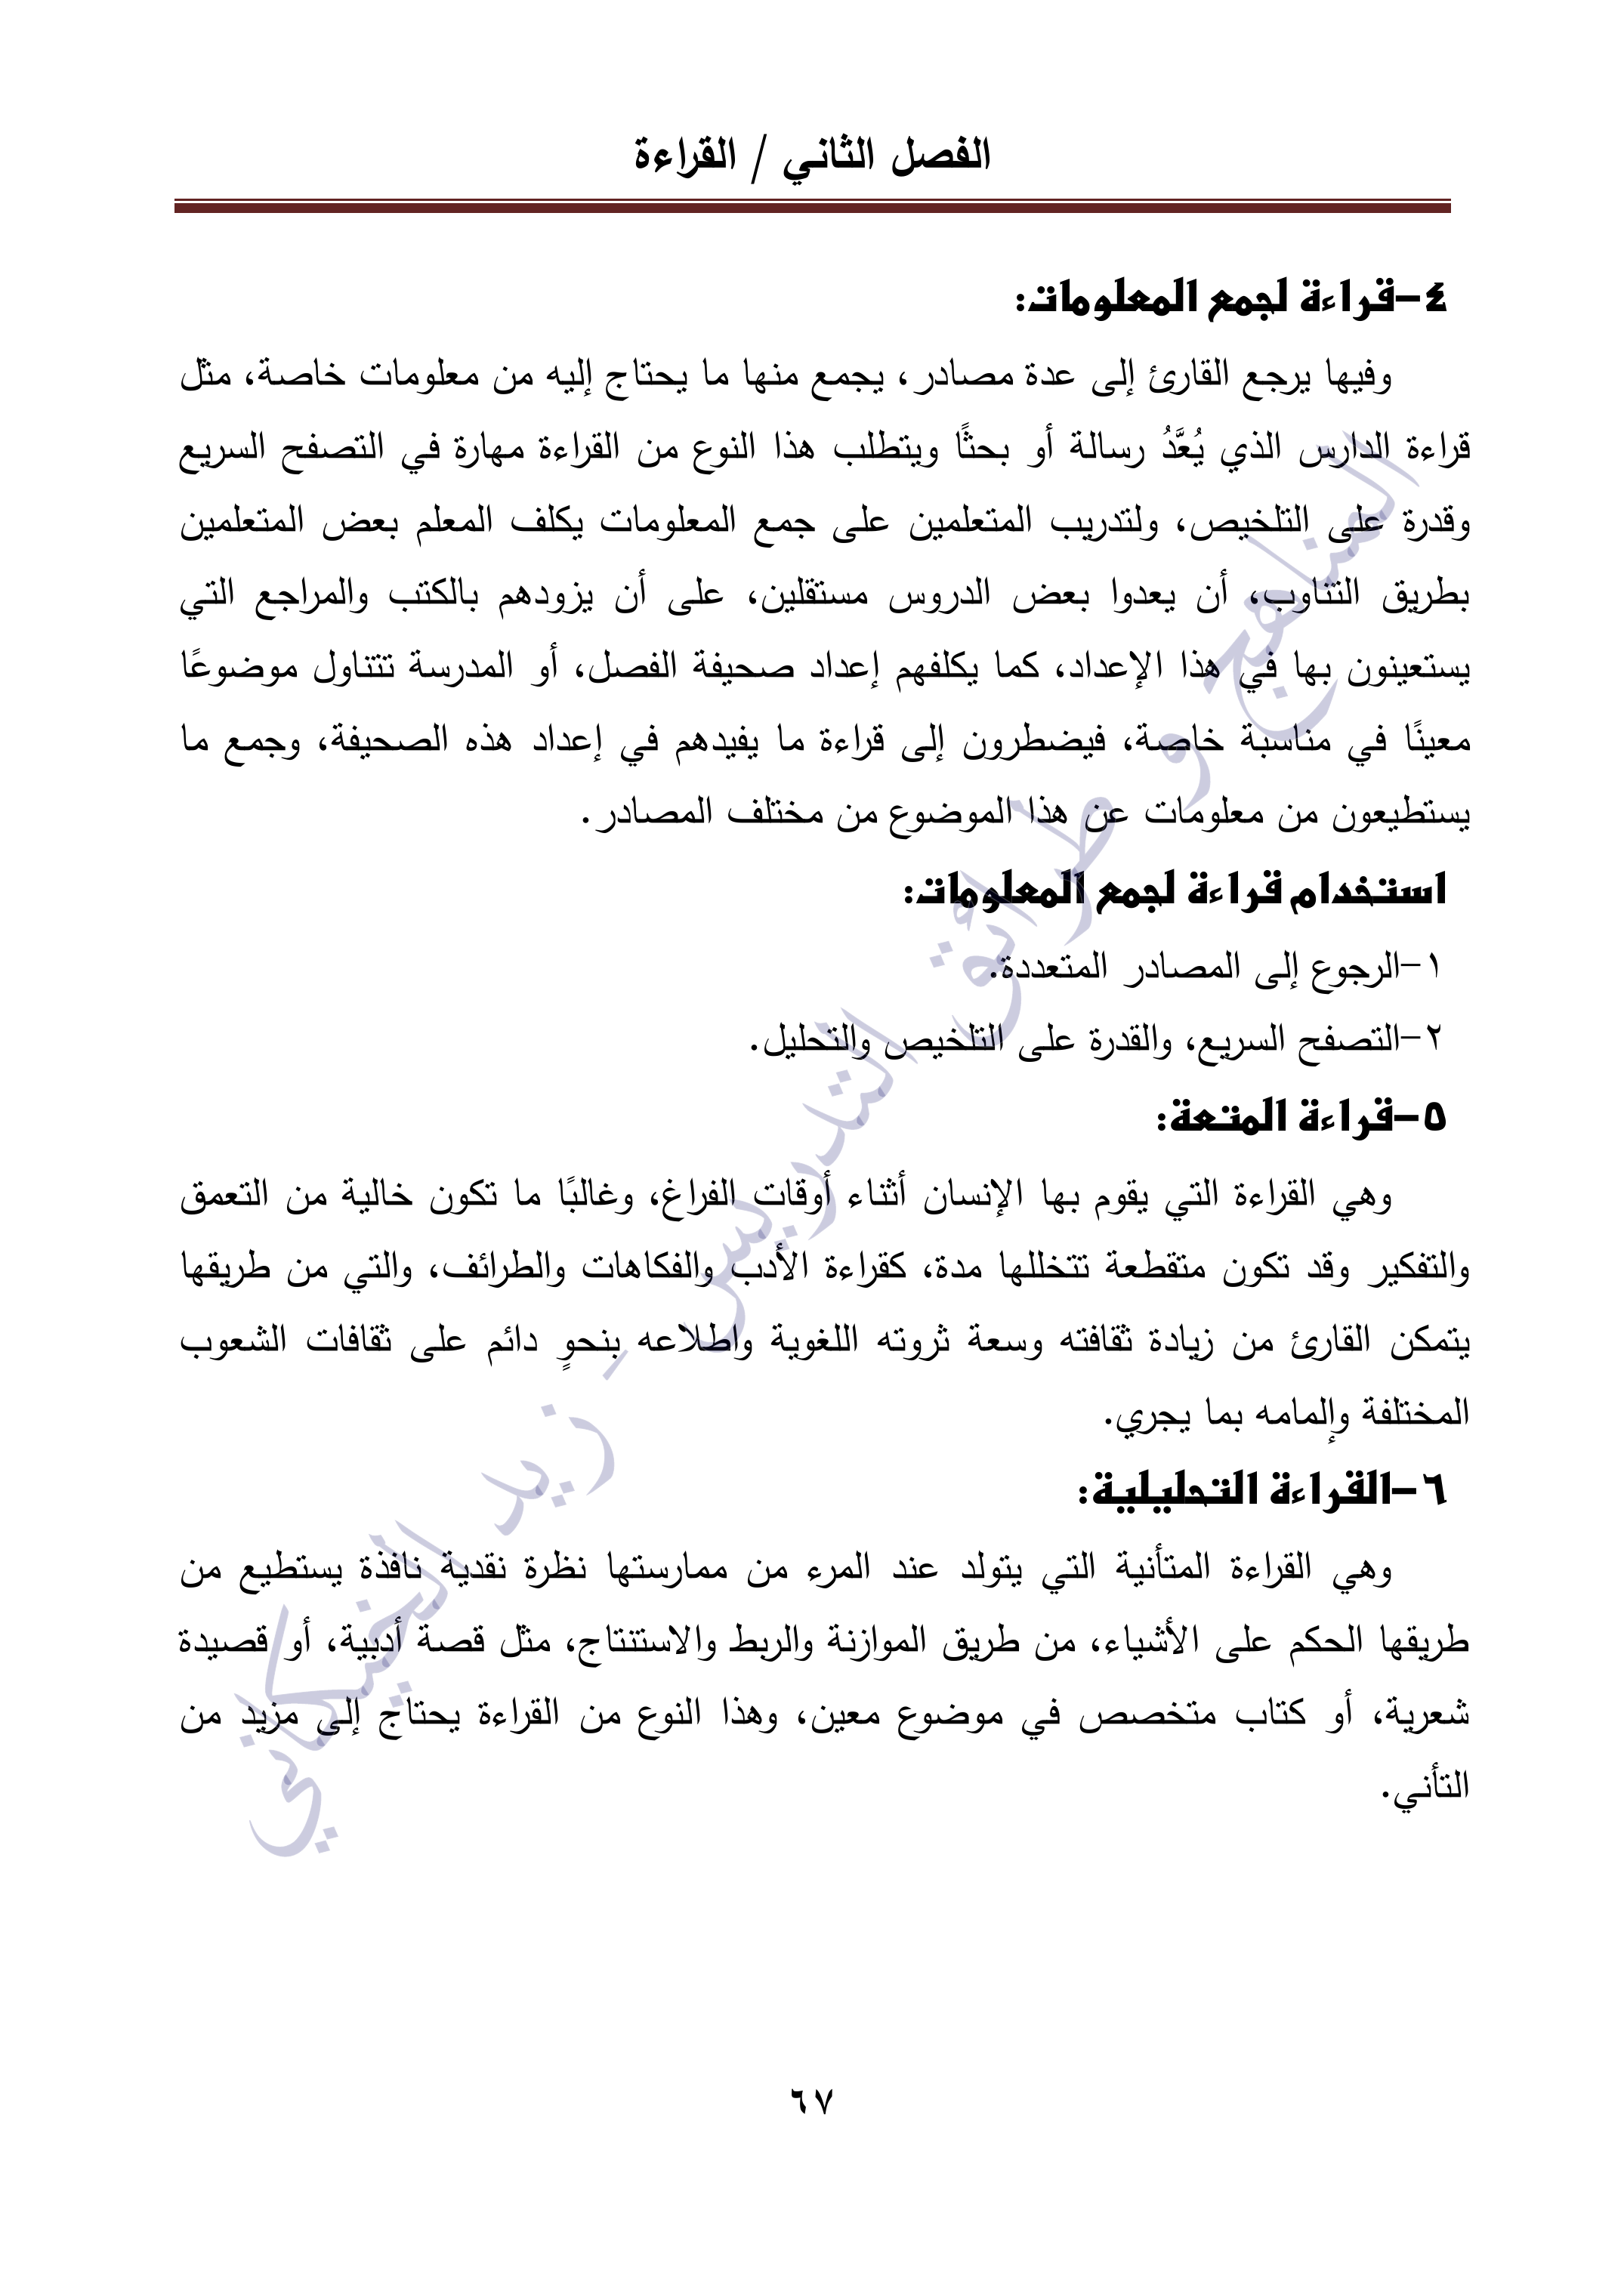 الفصل الثاني / القراءة
٤-قراءة لجمع المعلومات:
وفيها يرجع القارئ إلى عدة مصادر، يجمع منها ما يحتاج إليه من معلومات خاصة، مثل
قراءة الدارس الذي يُعَّدُ رسالة أو بحثًا ويتطلب هذا النوع من القراءة مهارة في التصفح السريع
وقدرة على التلخيص، ولتدريب المتعلمين على جمع المعلومات يكلف المعلم بعض المتعلمين
بطريق التناوب، أن يعدوا بعض الدروس مستقلين، على أن يزودهم بالكتب والمراجع التي
يستعينون بها في هذا الإعداد، كما يكلفهم إعداد صحيفة الفصل، أو المدرسة تتناول موضوعًا
معينًا في مناسبة خاصة، فيضطرون إلى قراءة ما يفيدهم في إعداد هذه الصحيفة، وجمع ما
يستطيعون من معلومات عن هذا الموضوع من مختلف المصادر.
استخدام قراءة لجمع المعلومات:
١-الرجوع إلى المصادر المتعددة.
٢-التصفح السريع، والقدرة على التلخيص والتحليل.
٥-قراءة المتعة:
وهي القراءة التي يقوم بها الإنسان أثناء أوقات الفراغ، وغالبًا ما تكون خالية من التعمق
والتفكير وقد تكون متقطعة تتخللها مدة، كقراءة الأدب والفكاهات والطرائف، والتي من طريقها
يتمكن القارئ من زيادة ثقافته وسعة ثروته اللغوية واطلاعه بنحوٍ دائم على ثقافات الشعوب
المختلفة وإلمامه بما يجري.
٦-القراءة التحليلية:
وهي القراءة المتأنية التي يتولد عند المرء من ممارستها نظرة نقدية نافذة يستطيع من
طريقها الحكم على الأشياء، من طريق الموازنة والربط والاستنتاج، مثل قصة أدبية، أو قصيدة
شعرية، أو كتاب متخصص في موضوع معين، وهذا النوع من القراءة يحتاج إلى مزيد من
التأني.
المناهج و طرائق التدريس - زيد الخيكاني
٦٧